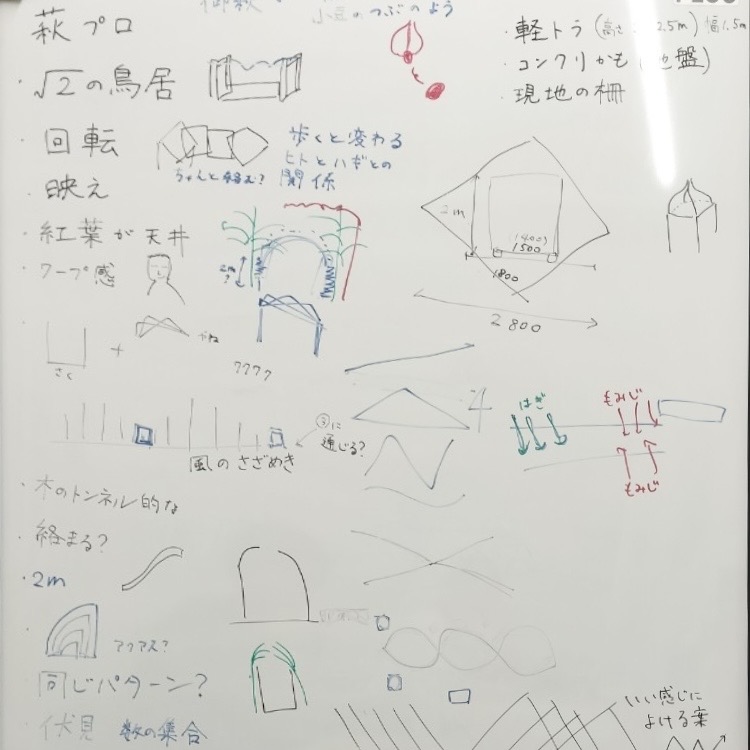 萩プロ
小豆のつぶのよう
・軽トラ (高さ 2.5m) 幅1.5m
・コンクリかも
・現地の柵
・√2の鳥居
と
・回転
歩くと変わる
ヒトとハギとの
関係
・映え
・紅葉が天井
・ワープ感
2m
2m
?
(1400)
1500
1800
2800
さく
+
はぎ
もみじ
もみじ
③に
通じる?
風のさざめき
・木のトンネル的な
・2m
同じパターン?
伏見
数の集合
いい感じに
よける葉